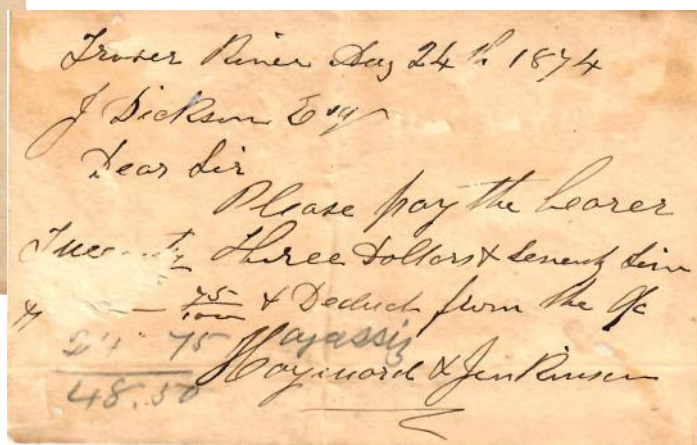 Fraser River Aug 24th 1874
J Dickson Esq
Dear Sir
Please pay the bearer
Twenty three Dollars & Seventy five
75/100 & Deduct from the a/c
24 75 Agassiz
Hayward & Jenkinson
48.50